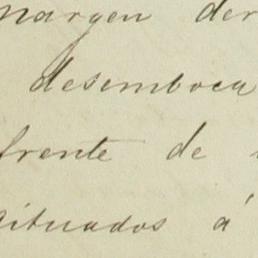 margen der
desemboca
frente de
situados á